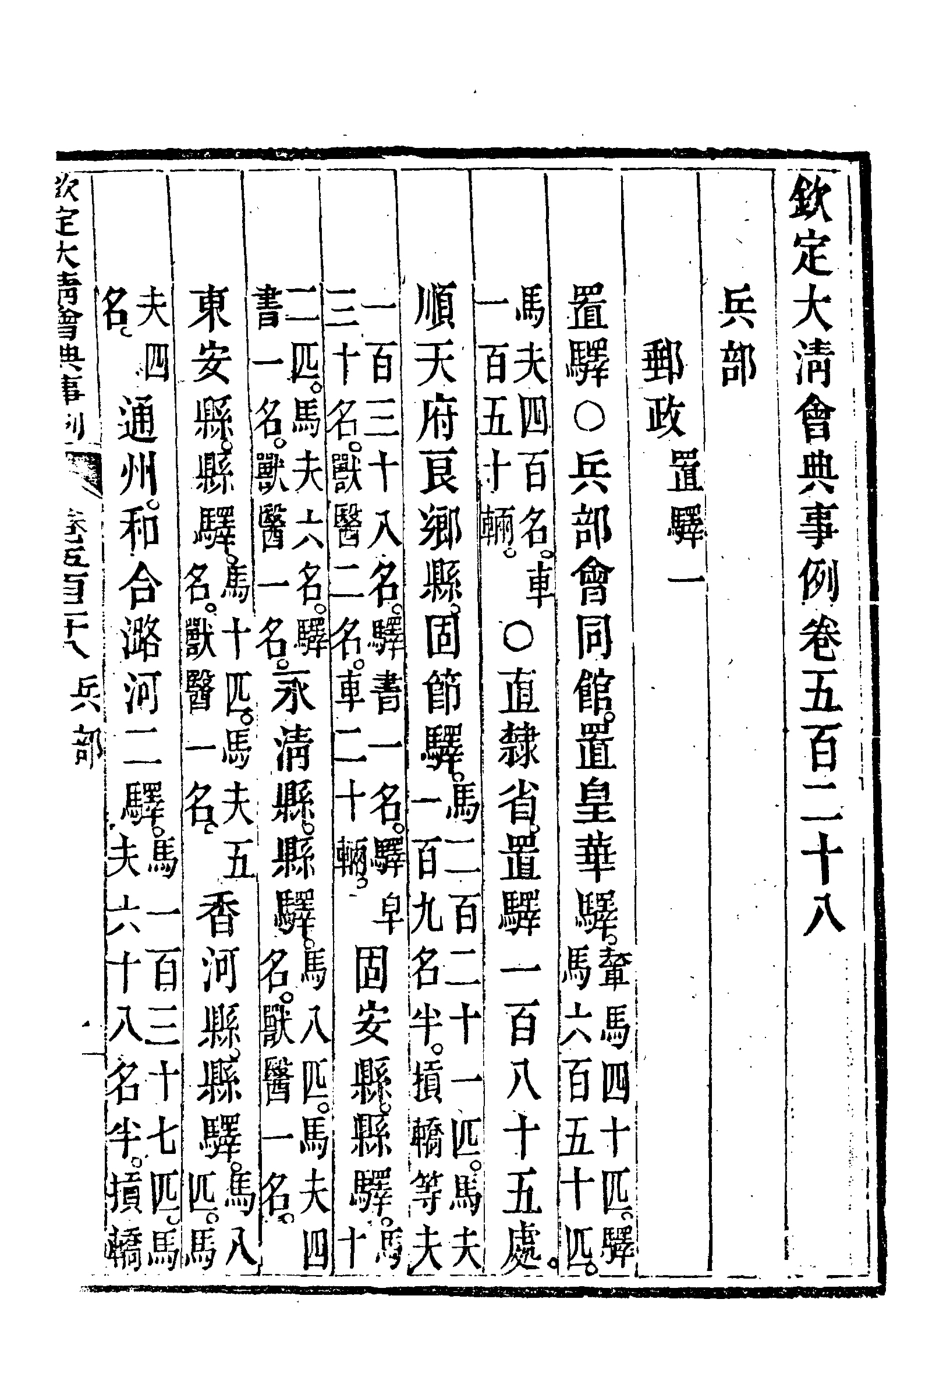 欽定大清會典事例卷五百二十八
兵部
郵政 置驛一
置驛○兵部會同館。置皇華驛。輦馬四十匹。驛馬六百五十匹。
馬夫四百名。車一百五十輛。○直隸省。置驛一百八十五處。
順天府良鄉縣。固節驛。馬二百二十一匹。馬夫一百九名半。摃轎等夫
一百三十八名。驛書一名。驛皁三十名。獸醫二名。車二十輛。固安縣。縣驛。馬十
二匹。馬夫六名。驛書一名。獸醫一名。永清縣。縣驛。馬八匹。馬夫四名。獸醫一名。
東安縣。縣驛。馬十匹。馬夫五名。獸醫一名。香河縣。縣驛。馬八匹。馬
夫四名。通州。和合潞河二驛。馬一百三十七匹。馬夫六十八名半。摃轎
欽定大清會典事例 卷五百二十八 兵部 一